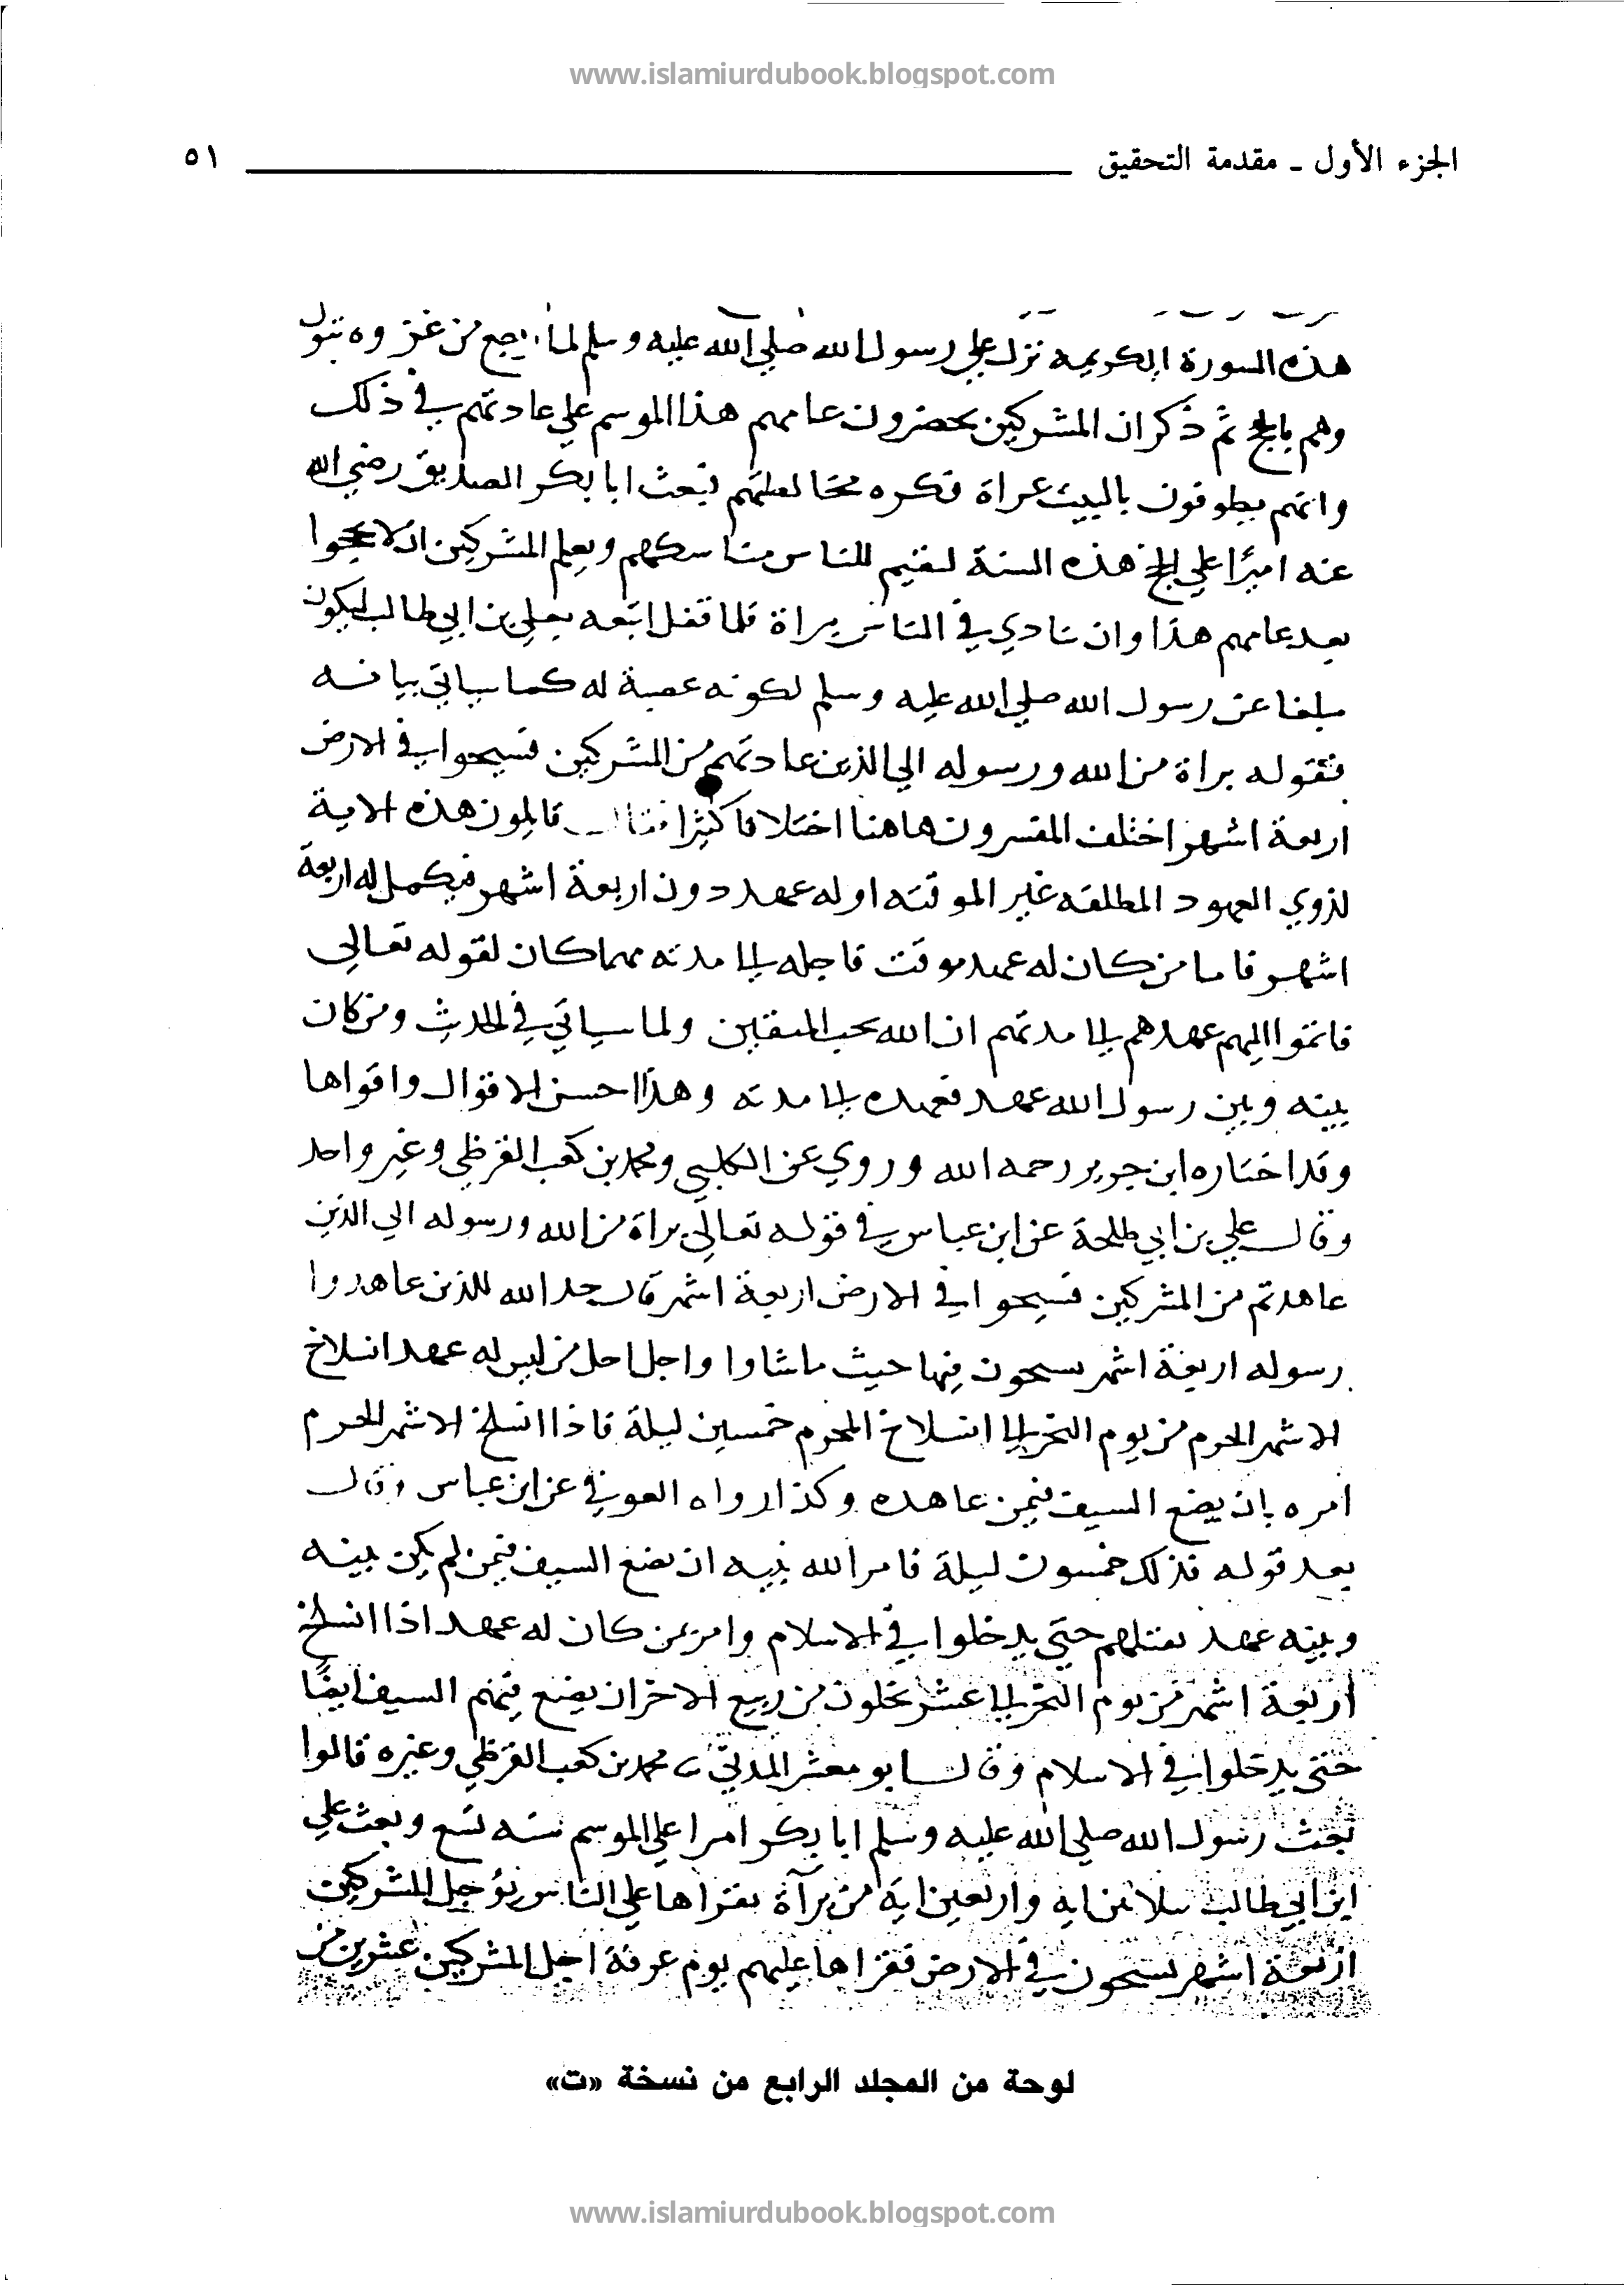 www.islamiurdubook.blogspot.com
الجزء الأول ـ مقدمة التحقيق ٥١
هذه السورة الكريمه نزل علي رسول الله صلي الله عليه وسلم لما رجع من غزوه تبوك
وهم بالحج ثم ذكر ان المشركين يحضرون عامهم هذا الموسم علي عادتهم في ذلك
وانهم يطوفون بالبيت عراة فكره مخالطتهم فبعث ابا بكر الصديق رضي الله
عنه اميرًا علي الحج هذه السنة ليقيم للناس مناسكهم ويعلم المشركين ان لا يحجوا
بعد عامهم هذا وان ينادي في الناس براة فلما قفل اتبعه بعلي بن ابي طالب ليكون
مبلغا عن رسول الله صلي الله عليه وسلم لكونه عصبة له كما سياتي بيانه
فقوله براة من الله ورسوله الي الذين عاهدتم من المشركين فسيحوا في الارض
اربعة اشهر اختلف المفسرون هاهنا اختلافا كثيرا فقال قايلون هذه الاية
لذوي العهود المطلقه غير الموقته او له عهد دون اربعة اشهر فيكمل له اربعة
اشهر فاما من كان له عهد موقت فاجله الي مدته مهما كان لقوله تعالي
فاتموا اليهم عهدهم الي مدتهم ان الله يحب المتقين ولما سياتي في الحديث ومن كان
بينه وبين رسول الله عهد فعهده الي مدته وهذا احسن الاقوال واقواها
وقد اختاره ابن جرير رحمه الله وروي عن الكلبي ومحمد بن كعب القرظي وغير واحد
وقال علي بن ابي طلحة عن ابن عباس في قوله تعالي براة من الله ورسوله الي الذين
عاهدتم من المشركين فسيحوا في الارض اربعة اشهر قال حد الله للذين عاهدوا
رسوله اربعة اشهر يسيحون فيها حيث ماشاوا واجل اجل من ليس له عهد انسلاخ
الاشهر الحرم من يوم النحر الي انسلاخ المحرم خمسين ليلة فاذا انسلخ الاشهر الحرم
امره بان يضع السيف فيمن عاهده وكذا رواه العوفي عن ابن عباس وقال
بعد قوله فذلك خمسون ليلة فامر الله نبيه ان يضع السيف فيمن لم يكن بينه
وبينه عهد يقتلهم حتي يدخلوا في الاسلام وامر بمن كان له عهد اذا انسلخ
اربعة اشهر من يوم النحر الي عشر يخلون من ربيع الاخر ان يضع فيهم السيف ايضًا
حتي يدخلوا في الاسلام وقال ابو معشر المدني محمد بن كعب القرظي وغيره قالوا
بعث رسول الله صلي الله عليه وسلم ابا بكر اميرا علي الموسم سنه تسع وبعث علي
ابن ابي طالب بثلاثين ايه واربعين ايه من براة يقراها علي الناس يؤجل المشركين
اربعة اشهر يسيحون في الارض فقراها عليهم يوم عرفة اجل المشركين عشرين من
لوحة من المجلد الرابع من نسخة «ت»
www.islamiurdubook.blogspot.com